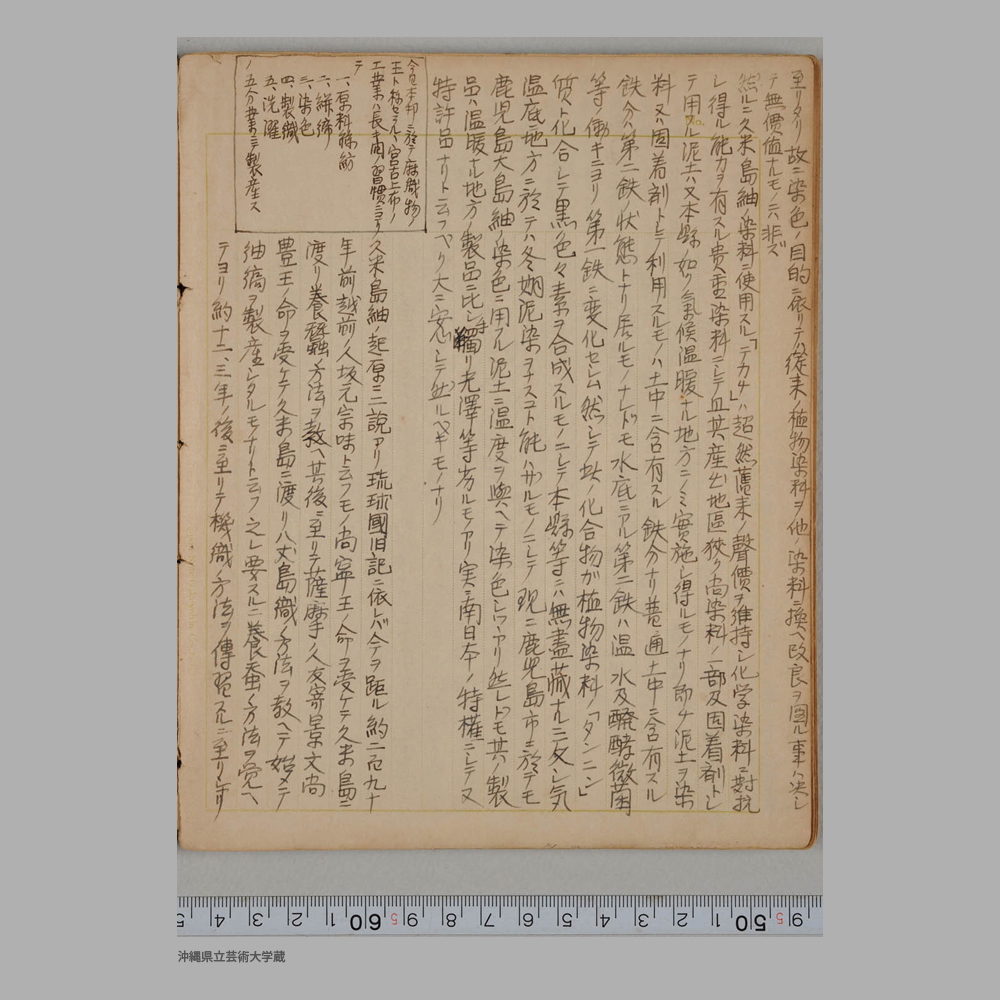 至リタリ故ニ染色ノ目的ニ依リテハ從来ノ植物染料ヲ他ノ染料ニ換ヘ改良ヲ圖ル事ハ決シ
テ無價値ナルモノニハ非ズ
然ルニ久米島紬ノ染料ニ使用スル「テカチ」ハ超然舊来ノ聲價ヲ維持シ化学染料ニ対抗
シ得ル能力ヲ有スル貴重染料ニシテ且其ノ産出地區狭ク尚染料ノ一部及固着剤トシ
テ用フル泥土ハ又本縣ノ如ク氣候温暖ナル地方ニノミ實施シ得ルモノナリ即チ泥土ヲ染
料又ハ固着剤トシテ利用スルモノハ土中ニ含有スル鉄分ナリ普通土中ニ含有スル
鉄分ハ第二鉄ノ状態トナリ居ルモノナレドモ水底ニアル第二鉄ハ温水及醗酵黴菌
等ノ働キニヨリ第一鉄ニ変化セシム然シテ此ノ化合物ガ植物染料ノ「タンニン」
質ト化合シテ黒ノ色々素ヲ合成スルモノニシテ本縣等ニハ無盡蔵ナルニ反シ気
温底地方ニ於テハ冬期泥染ヲナスコト能ハザルモノニシテ現ニ鹿児島市ニ於テモ
鹿児島大島紬ノ染色ニ用フル泥土ニ温度ヲ與ヘテ染色シツヽアリ然レドモ其ノ製
品ハ温暖ナル地方ノ製品ニ比シ手觸リ光澤等劣ルモノアリ実ニ南日本ノ特権ニシテ又
特許品ナリト云フベク大ニ安心シテ然ルベキモノナリ
今日本邦ニ於テ麻織物ノ
王ト稱セラル、宮古上布ノ
工業ハ長年間ノ習慣ニヨリ
テ
一、原料絲紡
二、絣締
三、染色
四、製織
五、洗濯
ノ五分業ニテ製産ス
久米島紬ノ起原ニ説アリ琉球國旧記ニ依レバ今ヲ距ル約二百九十
年前越前ノ人坂元宗味ト云フモノ尚寧王ノ命ヲ受ケテ久米島ニ
渡リ養蠶ノ方法ヲ教ヘ其後ニ至リテ薩摩ノ人友寄景文尚
豊王ノ命ヲ受ケテ久米島ニ渡リ八丈島織ノ方法ヲ教ヘテ始メテ
紬縞ヲ製産シタルモノナリト云フ之レ要スルニ養蚕ノ方法ヲ覚ヘ
テヨリ約十二、三年ノ後ニ至リテ機織ノ方法ヲ傳習スルニ至リシナリ
沖縄県立芸術大学蔵